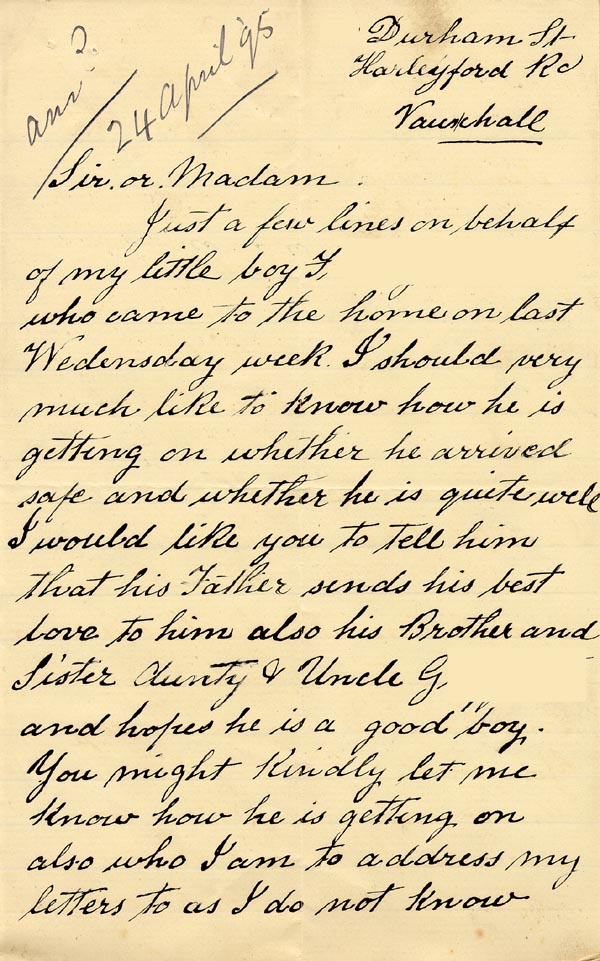 Durham St
Harleyford Rd
Vauxhall
ansd
24 April '95
Sir. or. Madam.
Just a few lines on behalf
of my little boy F,
who came to the home on last
Wedensday week. I should very
much like to know how he is
getting on whether he arrived
safe and whether he is quite well
I would like you to tell him
that his Father sends his best
love to him also his Brother and
Sister Aunty & Uncle G,
and hopes he is a good" boy.
You might kindly let me
know how he is getting on
also who I am to address my
letters to as I do not know